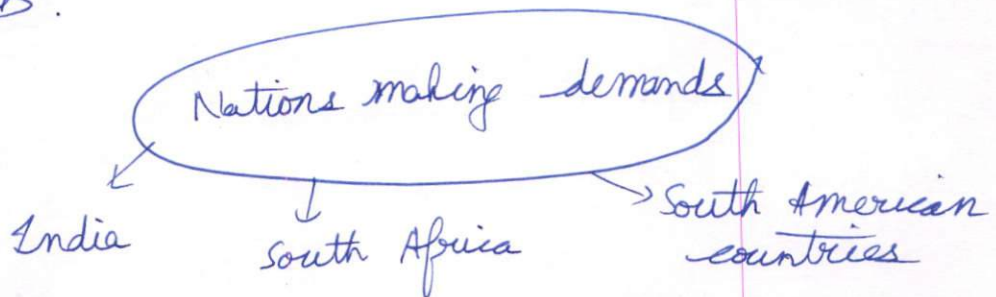 Nations making demands
India
South Africa
South American
countries